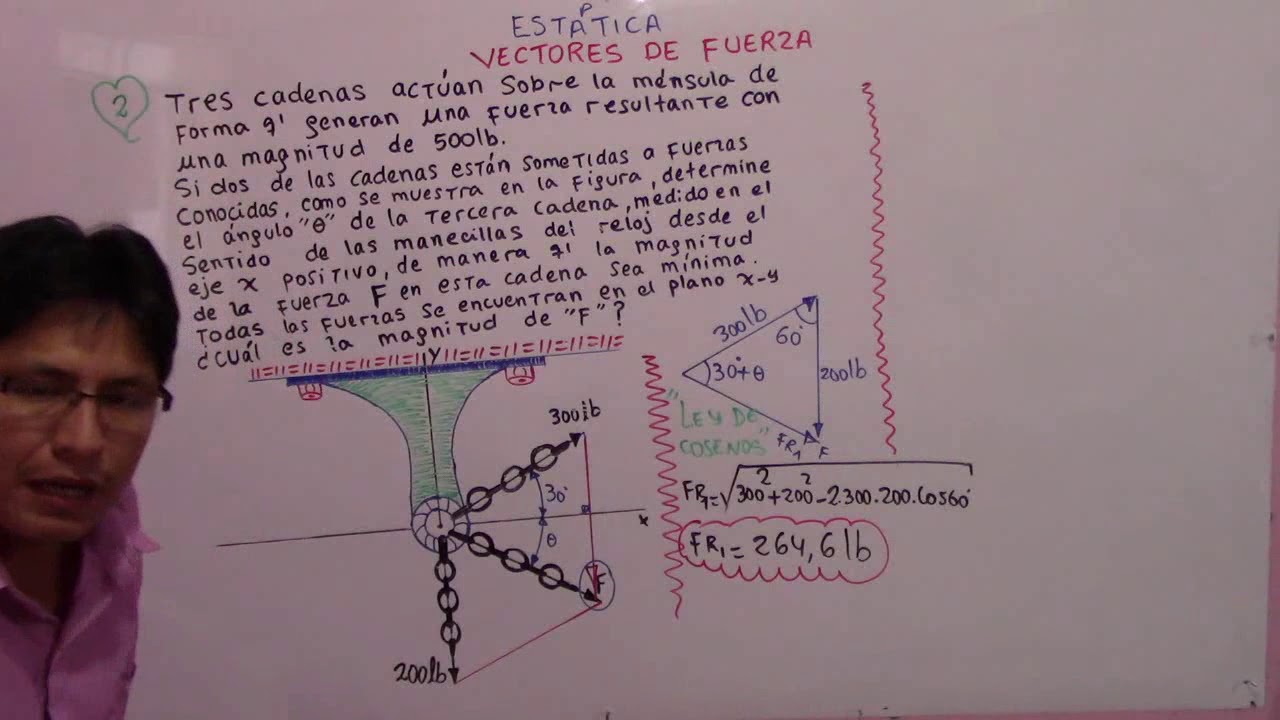 P
ESTATICA
VECTORES DE FUERZA
2
Tres cadenas actúan sobre la ménsula de
Forma q' generan una fuerza resultante con
una magnitud de 500lb.
Si dos de las cadenas están sometidas a fuerzas
conocidas, como se muestra en la figura, determine
el ángulo "θ" de la tercera cadena, medido en el
sentido de las manecillas del reloj desde el
eje x positivo, de manera q' la magnitud
de la fuerza F en esta cadena sea mínima.
Todas las fuerzas se encuentran en el plano x-y
¿Cuál es la magnitud de "F"?
Y
300lb
30°
x
θ
F
200lb
300lb
60°
30°+θ
200lb
"LEY DE
COSENOS"
FR1
F
FR1=√300²+200²-2.300.200.Cos60°
FR1=264,6 lb